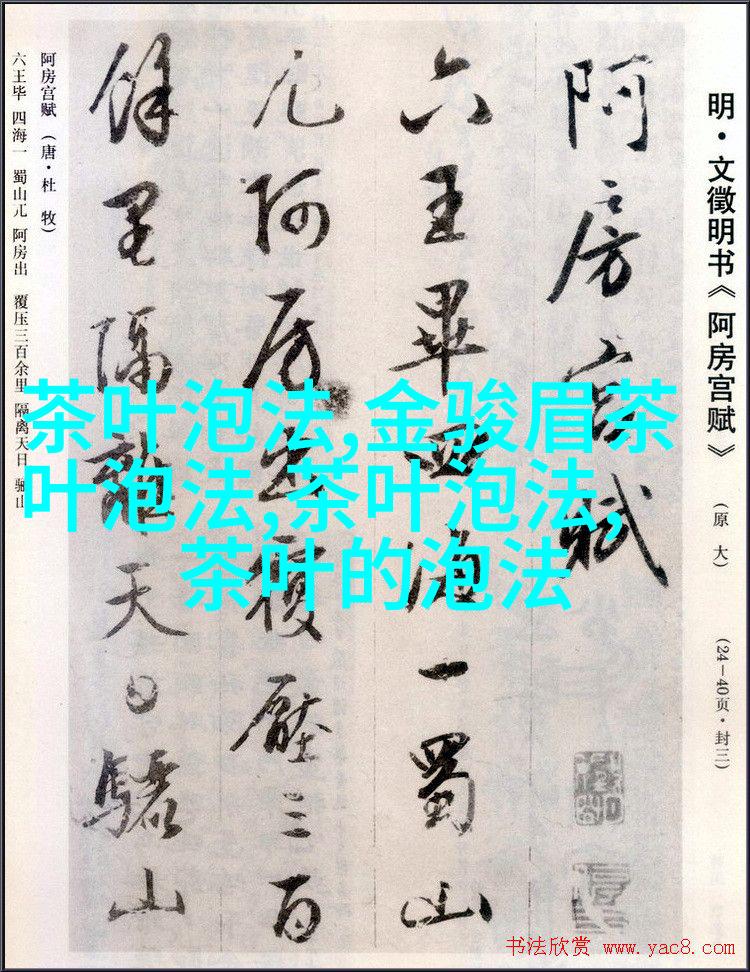 明·文徵明书《阿房宫赋》
(原大)
(24-40页·封三)
阿房宫赋
六王毕四海一蜀山
兀阿房出覆压三百
馀里隔离天日骊山
阿房宫赋(唐·杜牧)
六王毕 四海一 蜀山兀 阿房出 覆压三百余里 隔离天日 骊山
茶叶泡法,金骏眉茶
叶泡法,茶叶泡法,
茶叶的泡法
书法欣赏 www.yac8.com